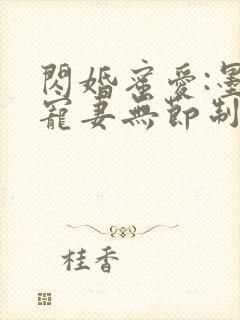 閃婚蜜愛:墨
寵妻無節制
桂香